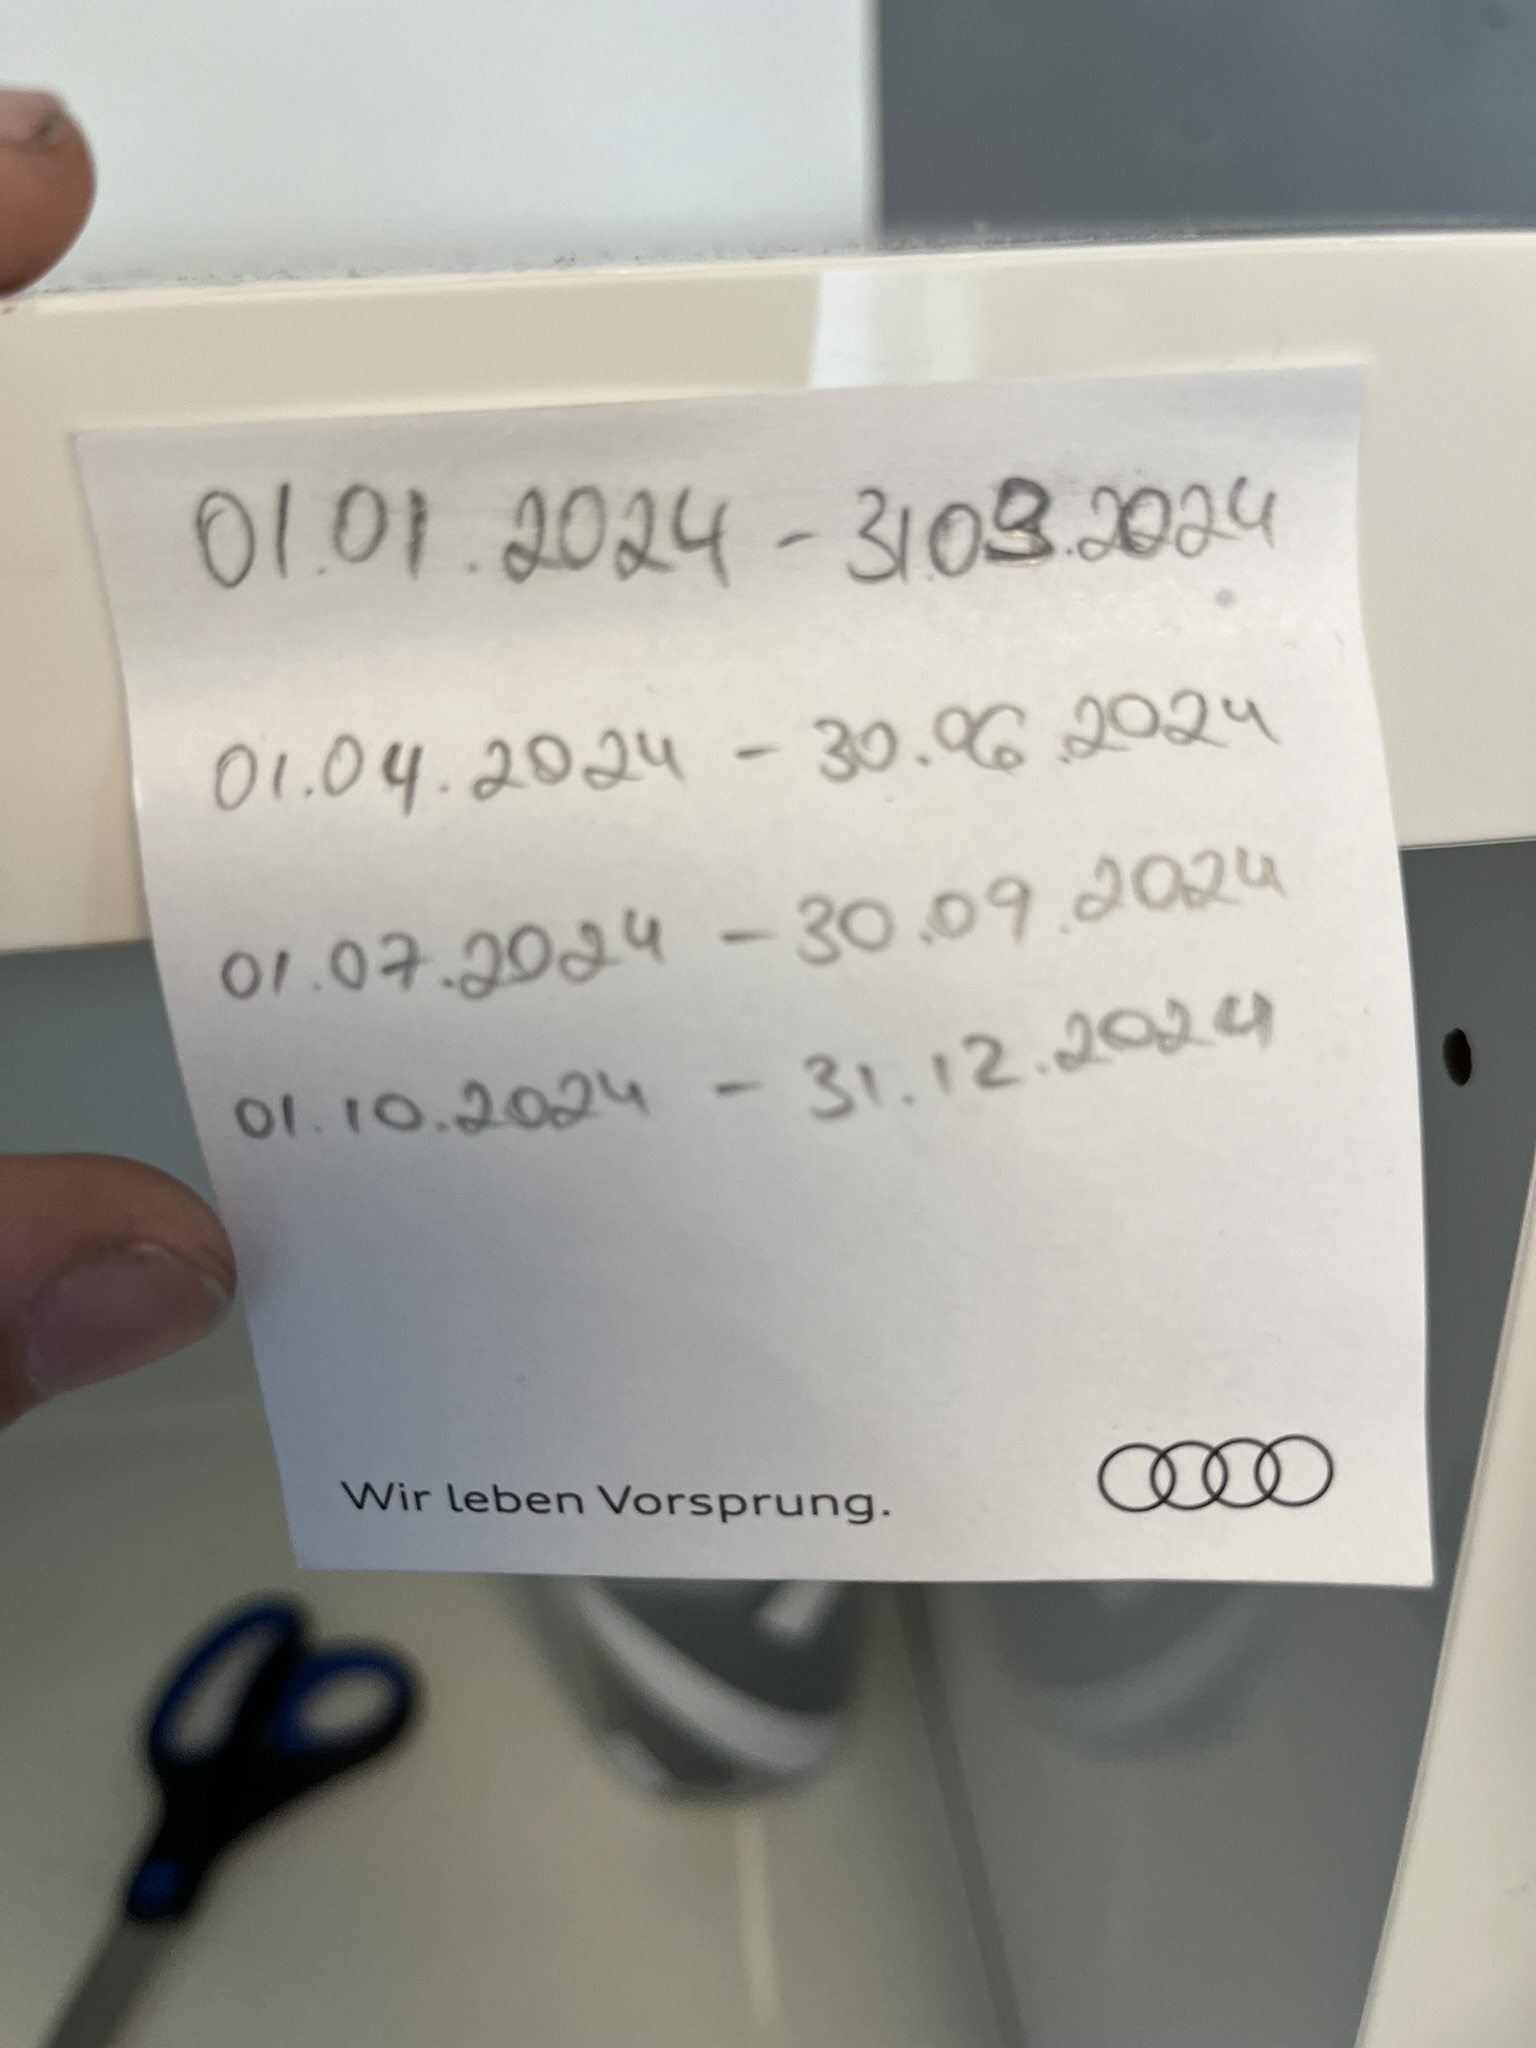 01.01.2024 - 31.03.2024
01.04.2024 - 30.06.2024
01.07.2024 - 30.09.2024
01.10.2024 - 31.12.2024
Wir leben Vorsprung.